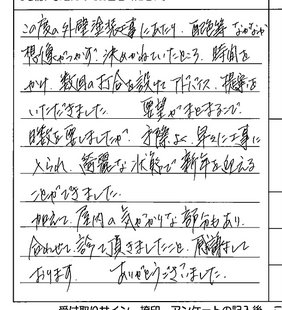 この度の外壁塗装工事にあたり、配色等 なかなか
想像がつかず 決めかねていたところ、時間を
かけ、数回の打合を設けて アドバイス、提案を
いただきました。 要望がまとまるまで
日数を要しましたが、手際よく、早々に工事に
入られ、綺麗な状態で新年を迎える
ことができました。
加えて、屋内の気がかりな部分もあり、
合わせて診て頂きましたこと、感謝して
おります。 ありがとうございました。
受け取りサイン、捺印、アンケートの記入後、